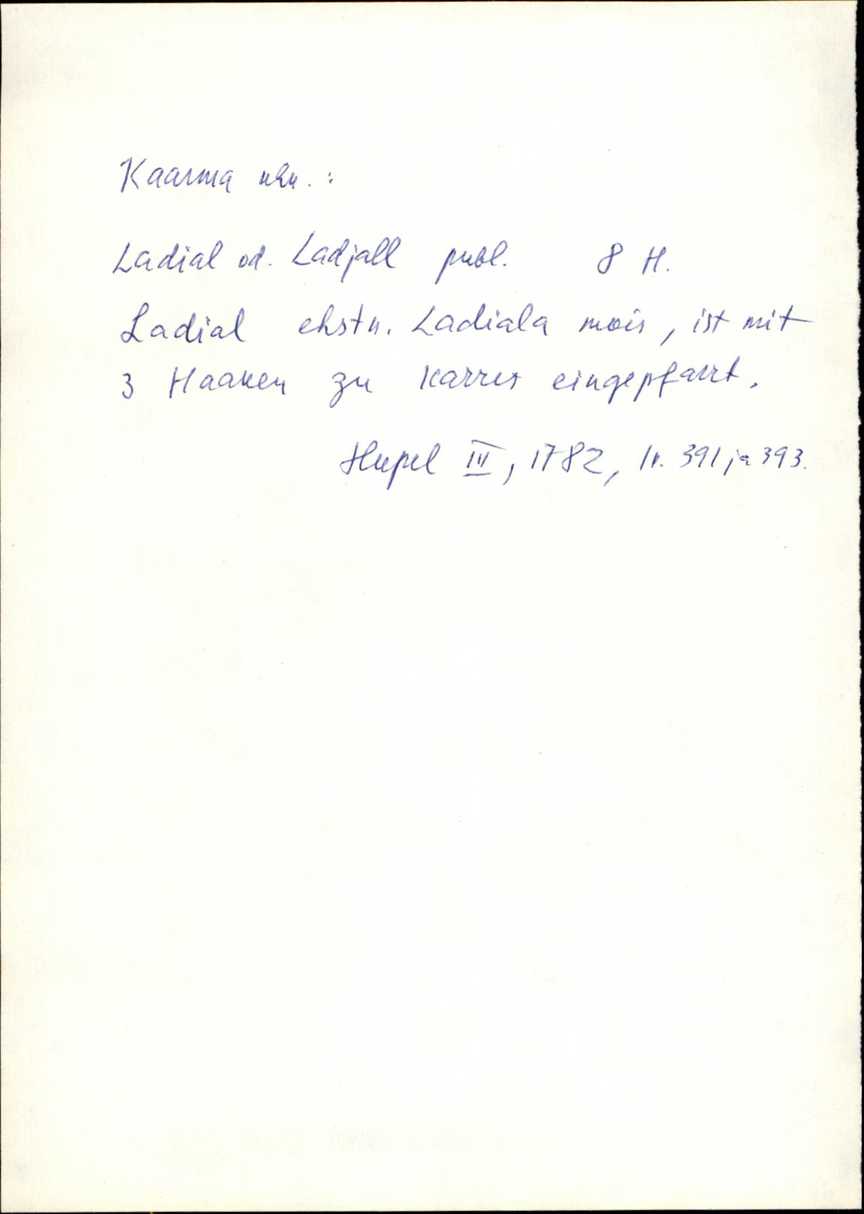 Kaarma khn. :
Ladial od. Ladjall publ. 8 H.
Ladial ehstn. Ladiala mois, ist mit
3 Haaken zu Karris eingepfarrt.
Hupel III, 1782, lk. 391 ja 393.